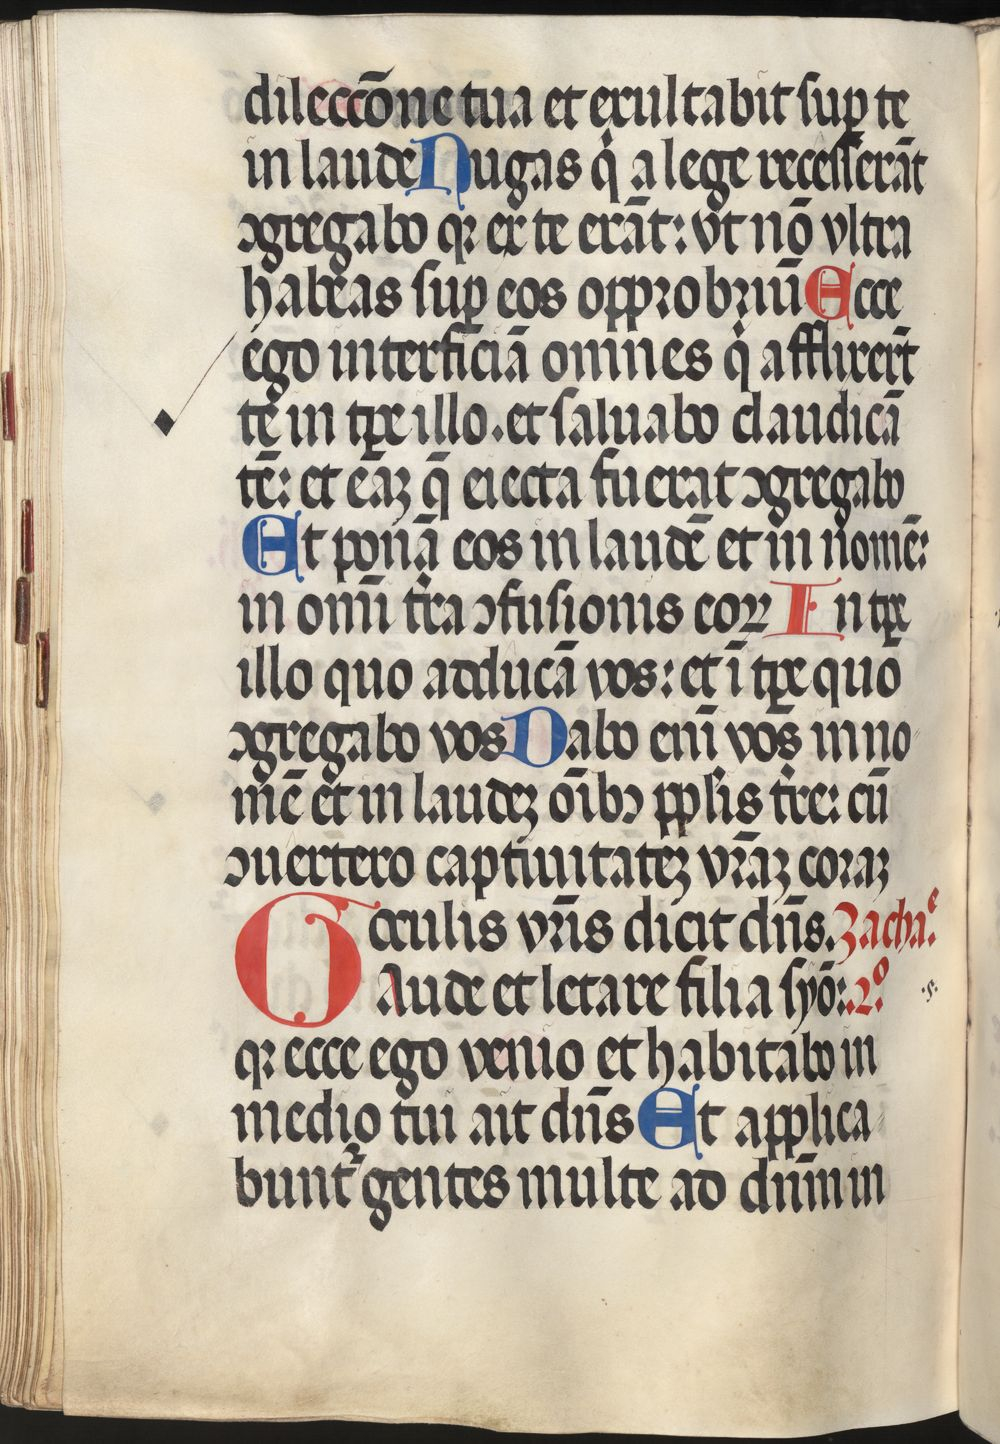 dileccōne tua et exultabit sup te
in laude Nugas q̇ a lege recesserāt
ꝯgregabo qꝛ ex te erāt: vt nō vltra
habeas suꝑ eos opprobriū Ecce
ego interficiā omnes q̇ afflixert̄
te in tꝑe illo. et saluabo claudicā
tē: et eaꝫ q̄ eiecta fuerat ꝯgregabo
Et ponā eos in laudē et in nomē:
in omī tr̄a ꝯfusionis eoꝝ In tꝑe
illo quo adducā vos: et ī tꝑe quo
ꝯgregabo vos Dabo enī vos in no
mē et in laudeꝫ oībꝰ ppl̄is tr̄e: cū
ꝯuertero captiuitateꝫ vr̄aꝫ coraꝫ
oculis vr̄is dicit dn̄s. Zachaᵉ.
Gaude et letare filia syō: .2.º
.s.
qꝛ ecce ego venio et habitabo in
medio tui ait dn̄s Et applica
buntᷣ gentes multe ad dn̄m in